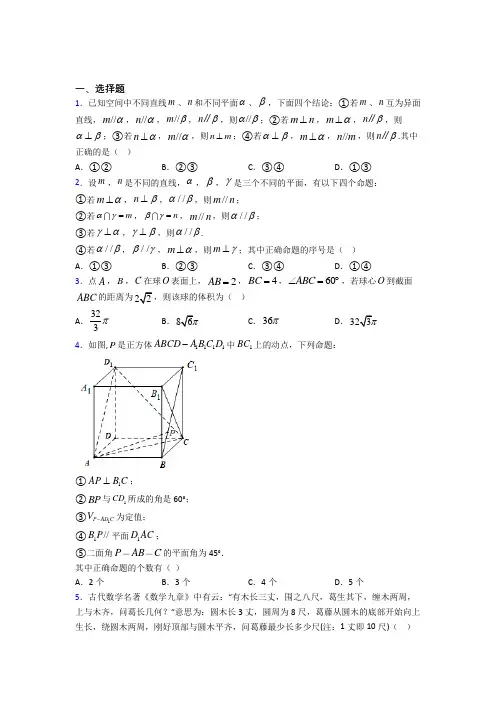 一、选择题
1．已知空间中不同直线 m 、 n 和不同平面 α 、 β ，下面四个结论：①若 m 、 n 互为异面
直线，m//α，n//α，m//β，n∥β，则α//β；②若m⊥n，m⊥α，n∥β，则
α⊥β；③若n⊥α，m//α，则n⊥m；④若α⊥β，m⊥α，n//m，则n∥β.其中
正确的是（ ）
A．①② B．②③ C．③④ D．①③
2．设 m ，n 是不同的直线，α，β，γ是三个不同的平面，有以下四个命题：
①若m⊥α，n⊥β，α//β，则m//n；
②若α∩γ=m，β∩γ=n，m//n，则α//β；
③若γ⊥α，γ⊥β，则α//β．
④若α//β，β//γ，m⊥α，则m⊥γ；其中正确命题的序号是（ ）
A．①③ B．②③ C．③④ D．①④
3．点 A ，B ，C 在球O 表面上，AB=2，BC=4，∠ABC=60°，若球心O 到截面
ABC的距离为2√2，则该球的体积为（ ）
A．32/3 π B．8√6π C．36π D．32√3π
4．如图,P 是正方体ABCD−A₁B₁C₁D₁中BC₁上的动点，下列命题：
D₁
C₁
A₁
B₁
D
P
C
A
B
①AP⊥B₁C；
②BP与CD₁所成的角是 60°；
③V为定值；
④B₁P//平面D₁AC；
⑤二面角P－AB－C的平面角为 45°．
其中正确命题的个数有（ ）
A．2 个 B．3 个 C．4 个 D．5 个
5．古代数学名著《数学九章》中有云：“有木长三丈，围之八尺，葛生其下，缠木两周，
上与木齐，问葛长几何？”意思为：圆木长 3 丈，圆周为 8 尺，葛藤从圆木的底部开始向上
生长，绕圆木两周，刚好顶部与圆木平齐，问葛藤最少长多少尺(注：1 丈即 10 尺)（ ）